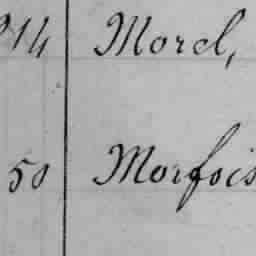 214 Morel,
50 Morfois